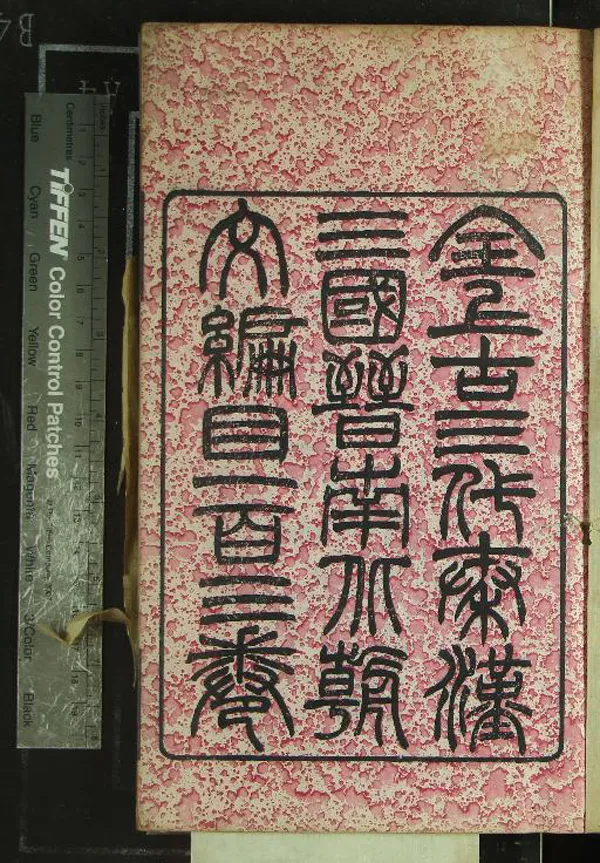 全上古三代秦漢
三國晉南北朝
文編目一百三卷
B4
A4
Centimetres
Inches
TIFFEN Color Control Patches
Blue
Cyan
Green
Yellow
Red
Magenta
White
3/Color
Black